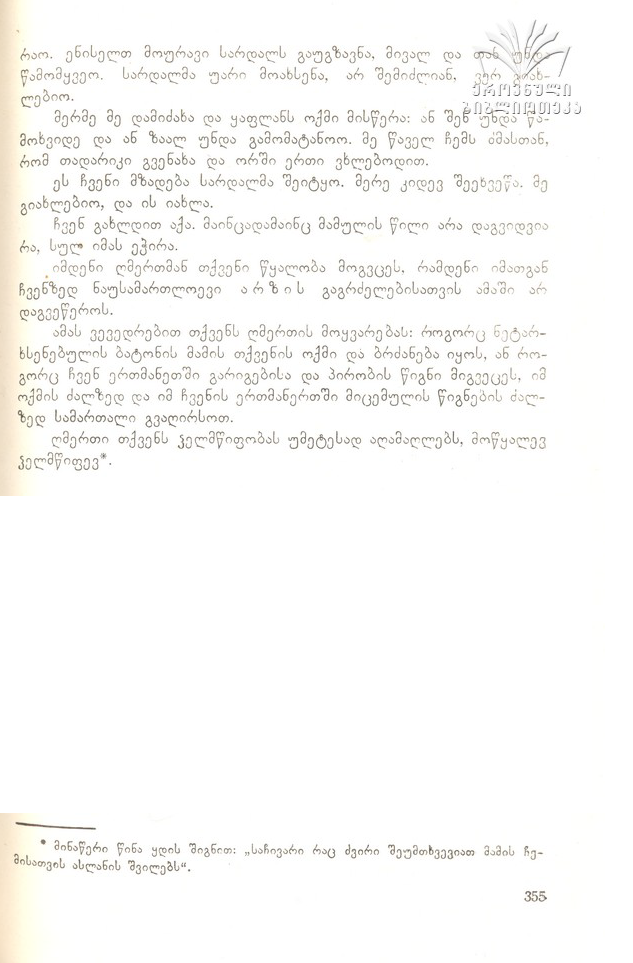 რაო. ენისელთ მოურავი სარდალს გაუგზავნა, მივალ და თან უნდა
წამომყვეო. სარდალმა უარი მოახსენა, არ შემიძლიან, ვერ გიახ-
ლებიო.
ეროვნული
ბიბლიოთეკა
მერმე მე დამიძახა და ყაფლანს ოქმი მისწერა: ან შენ უნდა წა-
მოხვიდე და ან ზაალ უნდა გამომატანოო. მე წაველ ჩემს ძმასთან,
რომ თადარიკი გვენახა და ორში ერთი ვხლებოდით.
ეს ჩვენი მზადება სარდალმა შეიტყო. მერე კიდევ შეეხვეწა. მე
გიახლებიო, და ის იახლა.
ჩვენ გახლდით აქა. მაინცადამაინც მამულის წილი არა დაგვიდვია
რა, სულ იმას ეჭირა.
იმდენი ღმერთმან თქვენი წყალობა მოგვცეს, რამდენი იმათგან
ჩვენზედ ნაუსამართლოევი არზის გაგრძელებისათვის ამაში არ
დაგვეწეროს.
ამას ვევედრებით თქვენს ღმერთის მოყვარებას: როგორც ნეტარ-
ხსენებულის ბატონის მამის თქვენის ოქმი და ბრძანება იყოს, ან რო-
გორც ჩვენ ერთმანეთში გარიგებისა და პირობის წიგნი მიგვეცეს, იმ
ოქმის ძალზედ და იმ ჩვენის ერთმანერთში მიცემულის წიგნების ძალ-
ზედ სამართალი გვაღირსოთ.
ღმერთი თქვენს ჴელმწიფობას უმეტესად აღამაღლებს, მოწყალევ
ჴელმწიფევ*.
* მინაწერი წინა ყდის შიგნით: „საჩივარი რაც ძვირი შეუმთხვევიათ მამის ჩე-
მისათვის ასლანის შვილებს“.
355